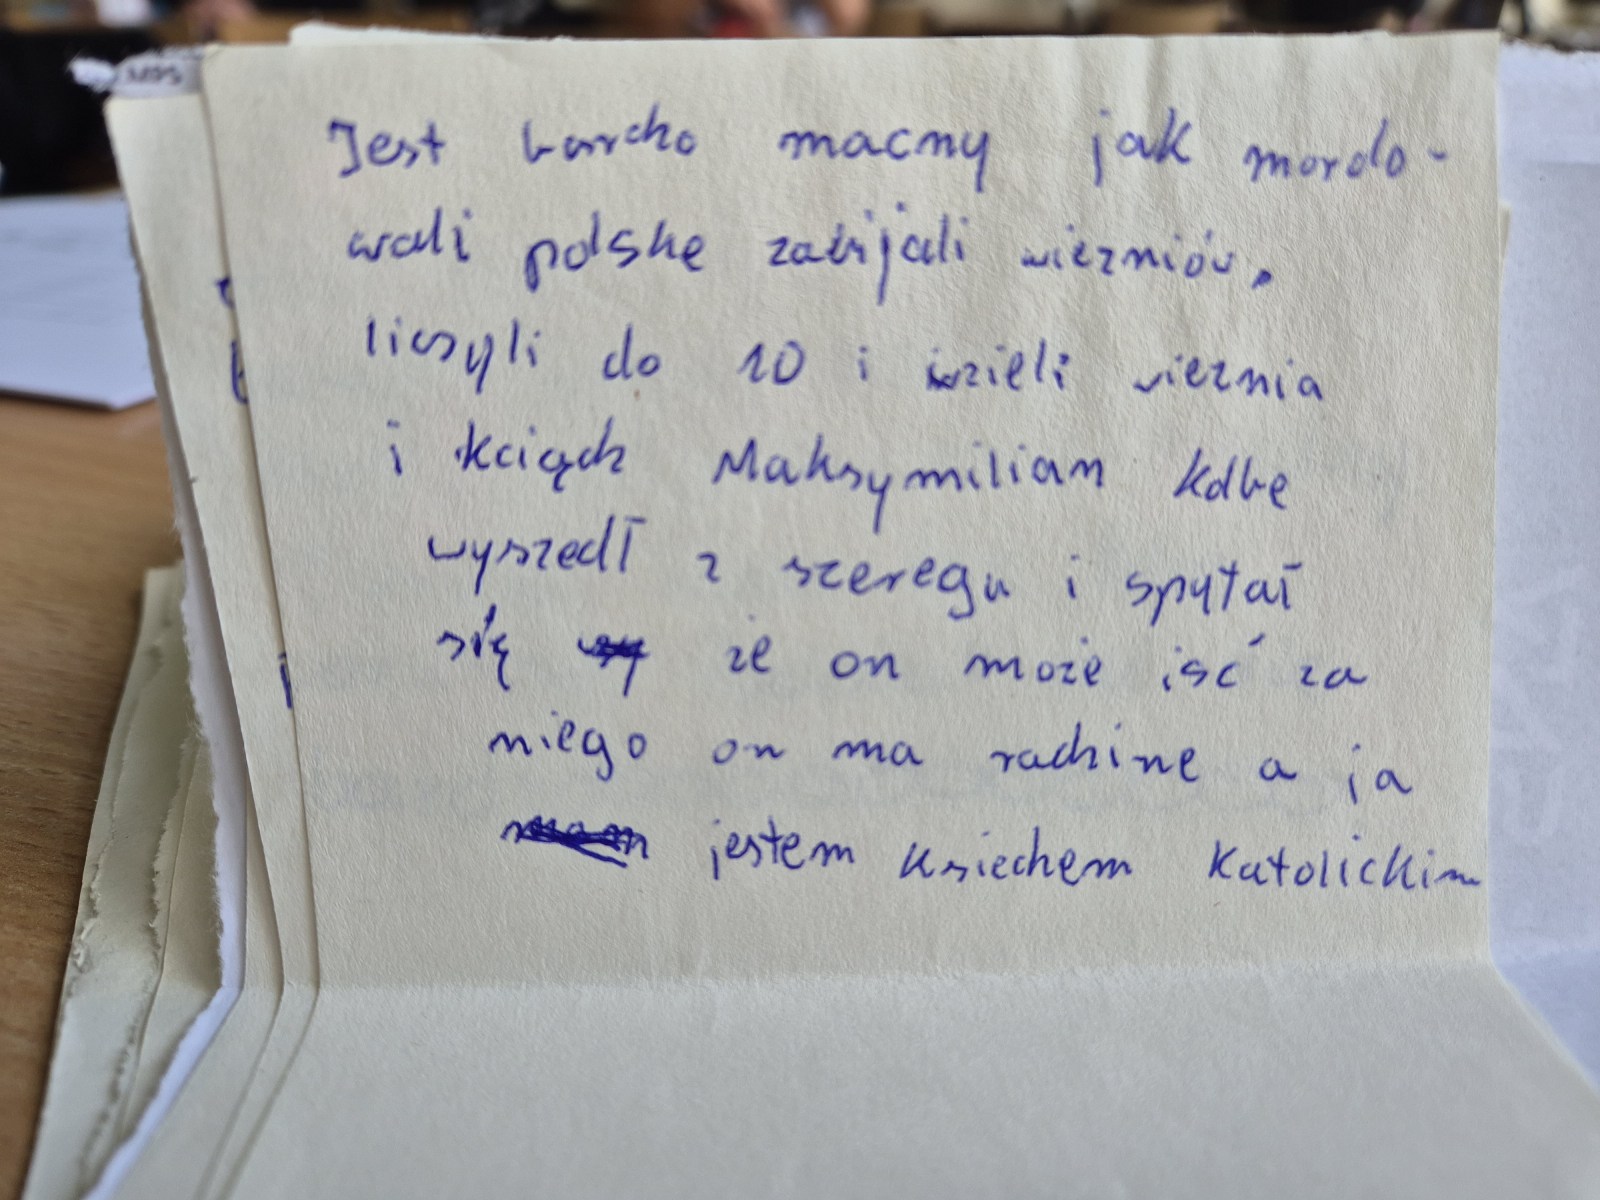 Jest bardzo macny jak mordo-
wali polskę zabijali wiezniów.
liczyli do 10 i wzieli wieznia
i kciądz Maksymilian Kolbe
wyszedł z szeregu i spytał
się że on może iść za
niego on ma radzine a ja
jestem Ksiedzem Katolickim